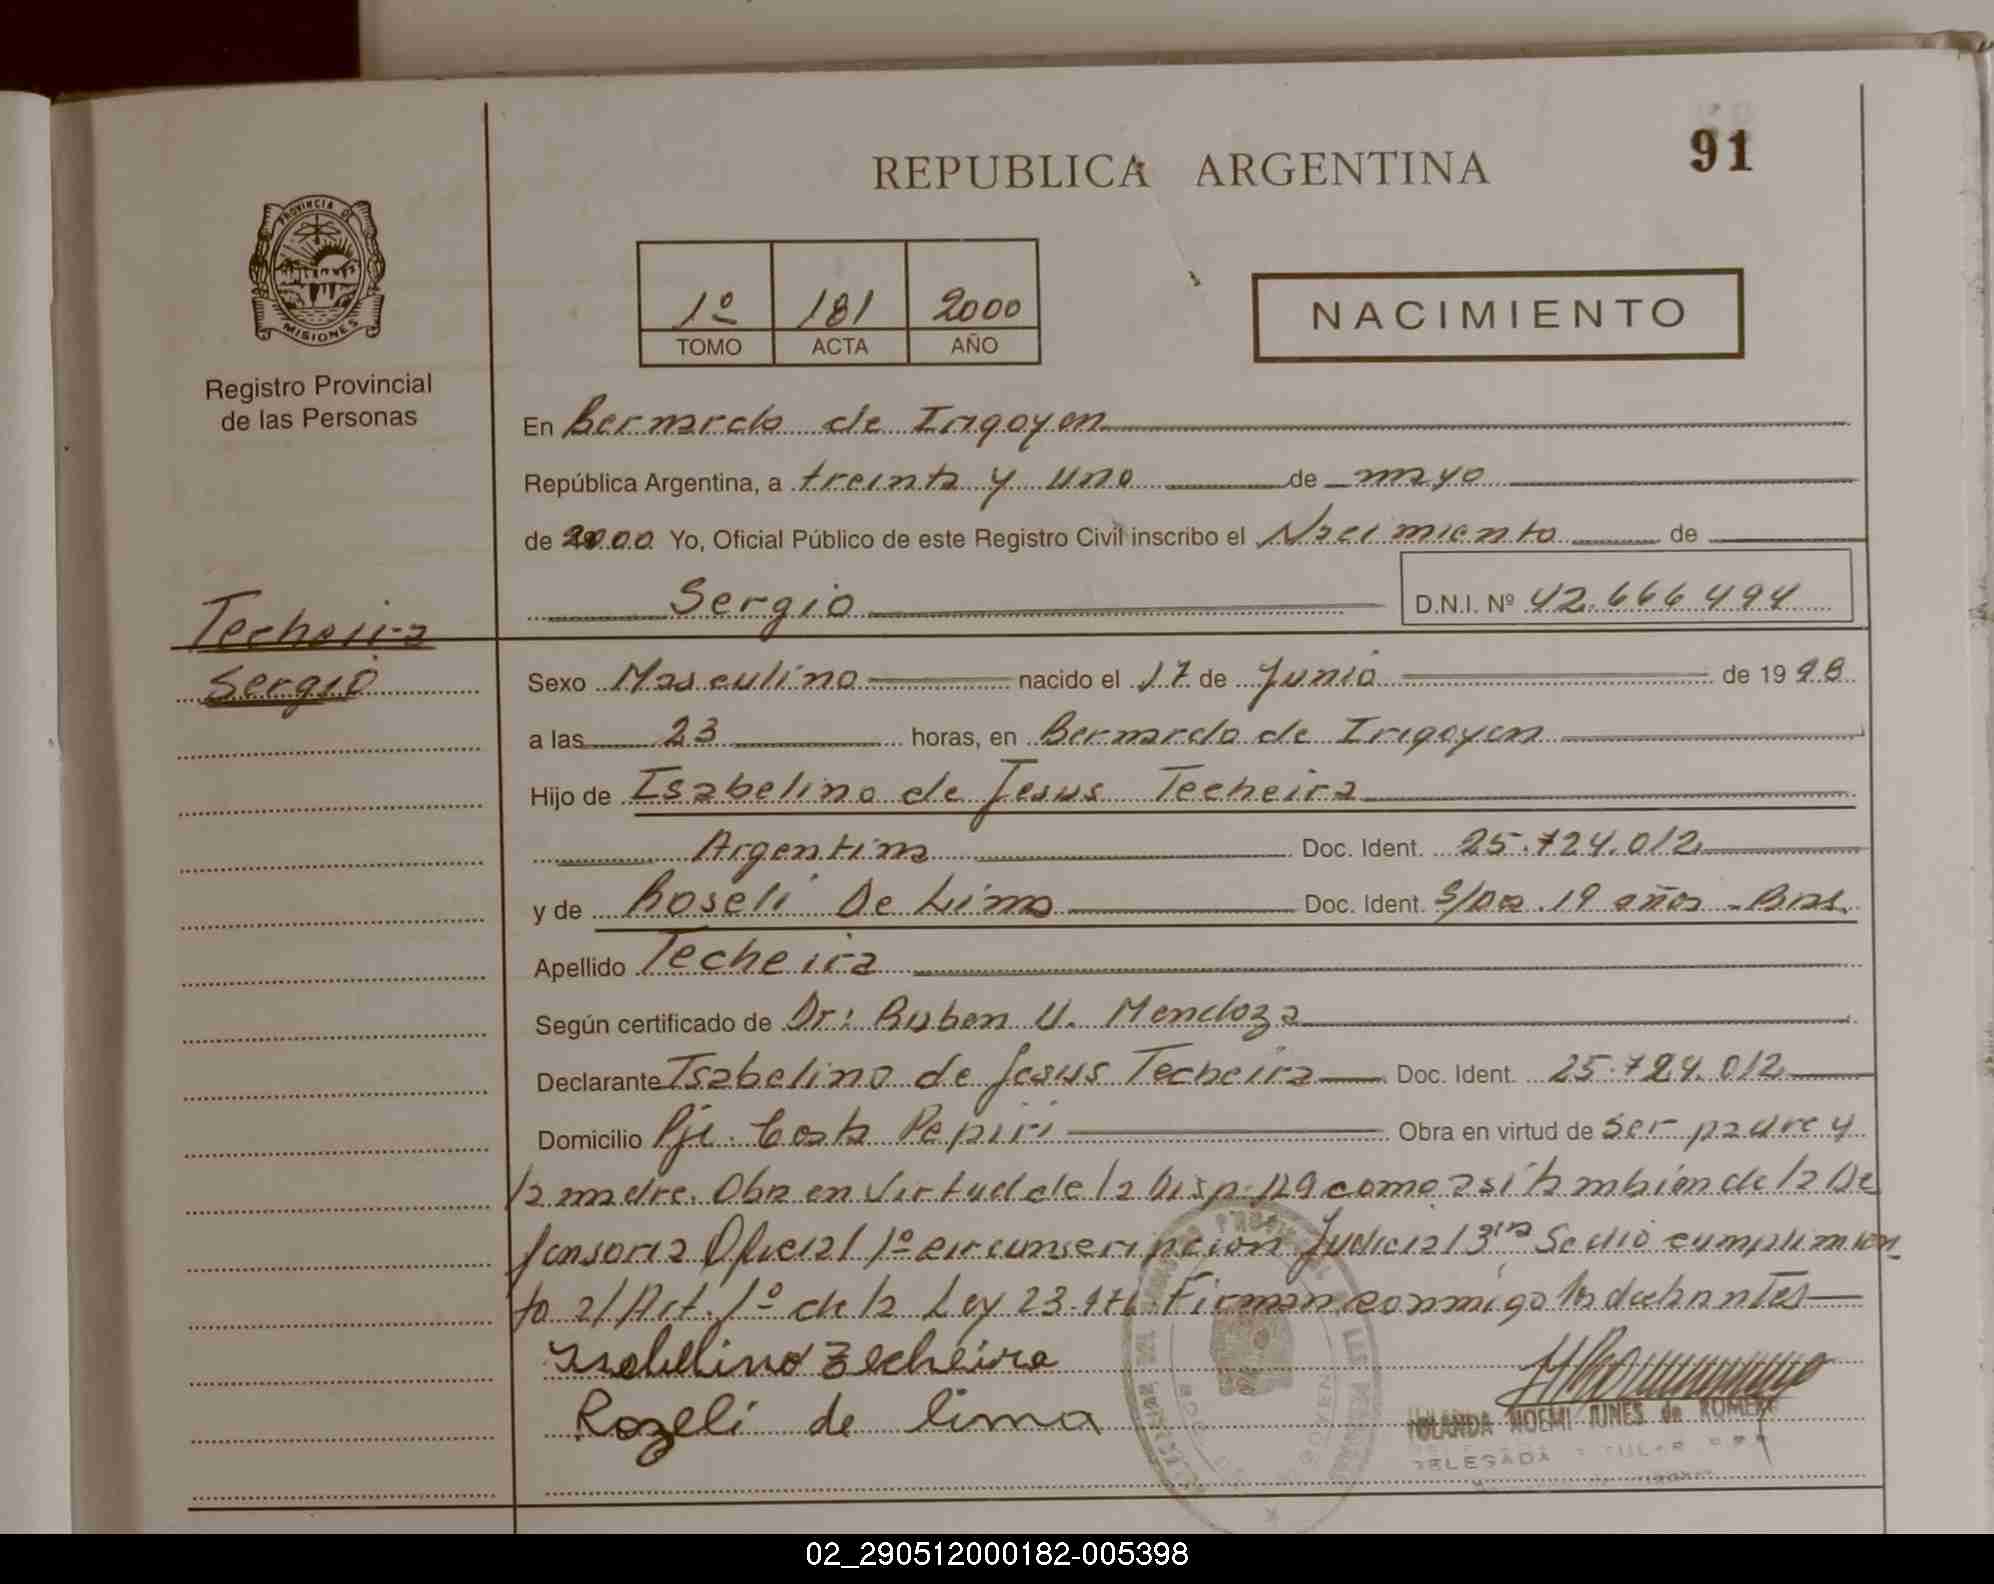 91
REPUBLICA ARGENTINA
PROVINCIA DE
MISIONES
Registro Provincial
de las Personas
1º 181 2000
TOMO ACTA AÑO
NACIMIENTO
En Bernardo de Irigoyen
República Argentina, a treinta y uno de mayo
de 2000 Yo, Oficial Público de este Registro Civil inscribo el Nacimiento de
Sergio D.N.I. Nº 42.666494
Techeira
Sergio
Sexo Masculino nacido el 17 de Junio de 1998
a las 23 horas, en Bernardo de Irigoyen
Hijo de Isabelino de Jesus Techeira
Argentina Doc. Ident. 25.724.012
y de Roseli De Lima Doc. Ident. S/Doc. 19 años - Bras.
Apellido Techeira
Según certificado de Dr: Ruben U. Mendoza
Declarante Isabelino de Jesus Techeira Doc. Ident. 25.724.012
Domicilio Pje. Costa Pepiri Obra en virtud de ser padre y
la madre. Obra en virtud de la Disp. 129 como asi tambien de la De
fensoria Oficial 1º circunscripcion Judicial 3ra Se dio cumplimien
to al Art. 1º de la Ley Firman conmigo
Isabelino Techeira
Rozeli de lima
YOLANDA NOEMI JUNES de ROMERO
DELEGADA
02_290512000182-005398